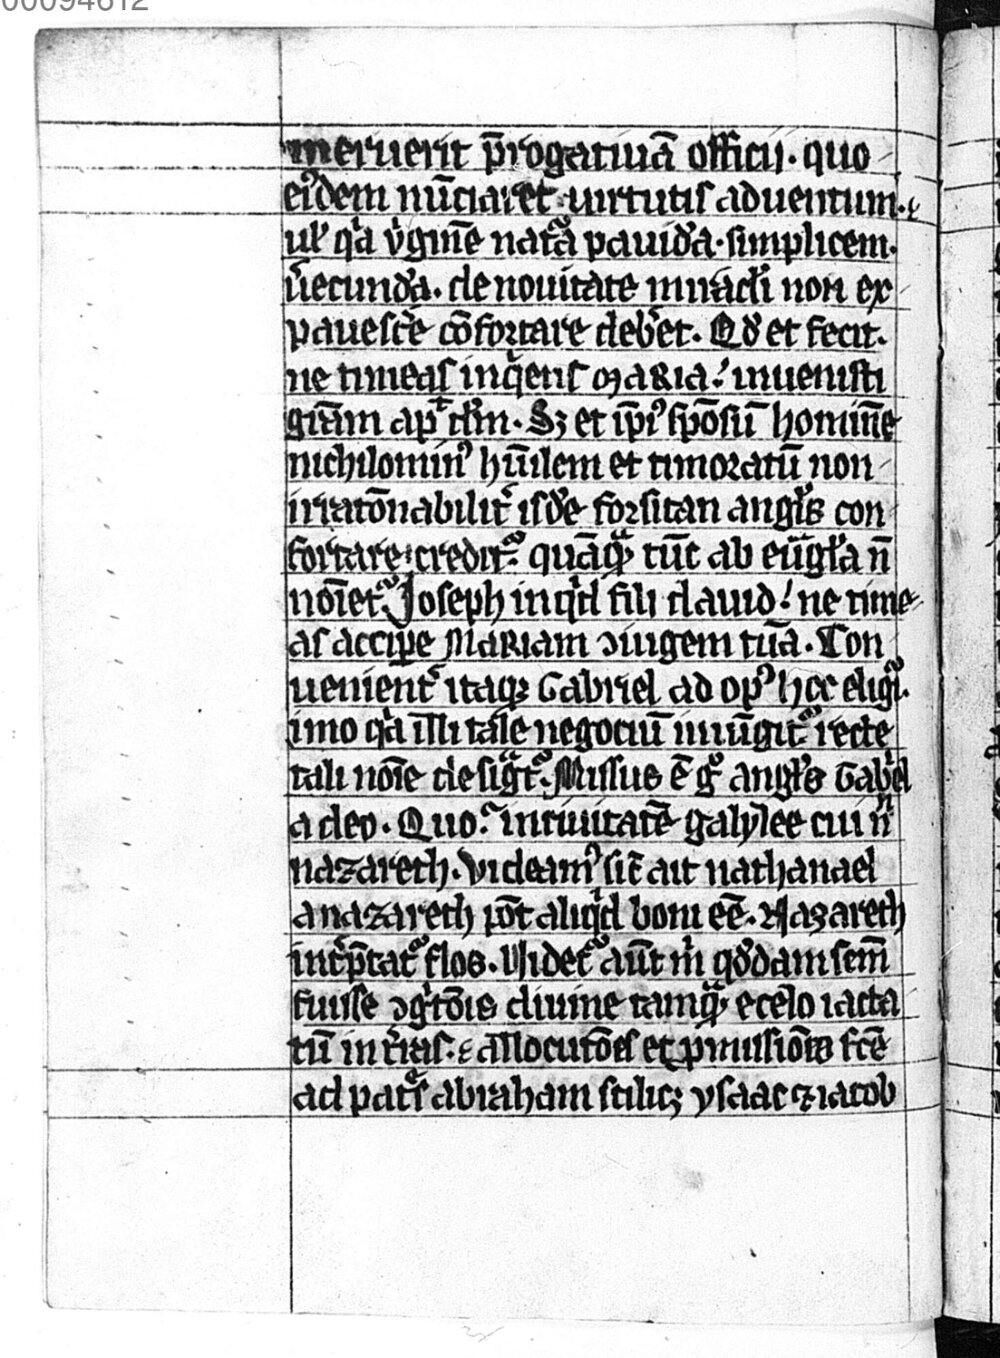 00094612
meruerit p̄rogatiuā officij. quo
eiꝰdem nūciaret uirtutis aduentum.
ul' qͥa v̓ginē nat͛a pauidā. simplicem.
v̓ecundā. de nouitate miraclī non ex
pauesc̓e cōfortare deb̓et. Qd̓ et fecit.
ne timeas inqͥens maria! inuenisti
gr̄am apͭ dn̄m. Sꝫ et ip̄iꝰ spōsū hominē
nichilominꝰ hūilem et timoratū non
irratōnabilit̓ isdē forsitan angl̓s con
fortare credit᷑. quāqͣꝫ tūc ab eūgl̓a n̄
noīet᷑. Joseph inqͥd fili dauid! ne time
as accip̄e mariam ɔiugem tuā. Con
uenient̓ itaqꝫ Gabriel ad opꝰ hoc eligit᷑.
imo qͥa illi tale negociū iniūgit᷑ recte
tali noīe desigͣt᷑. Missus ē gͦ angl̓s Gabͥel
a deo. Quo? in ciuitatē galylee cui n̄
nazareth. Videamꝰ si c̄ ait nathanael
a nazareth pōt aliqͥd boni eē. Nazareth
int̓p̄tat᷑ flos. Videt᷑ aūt m̓ qd̓dam sem̄
fuisse ɔgͥtōis diuine tamqͣꝫ e celo iacta
tū in t̓ras. allocutōes et p̓missiōes fc̄e
ad pat͛s abraham scilicꝫ ysaac ⁊ iacob